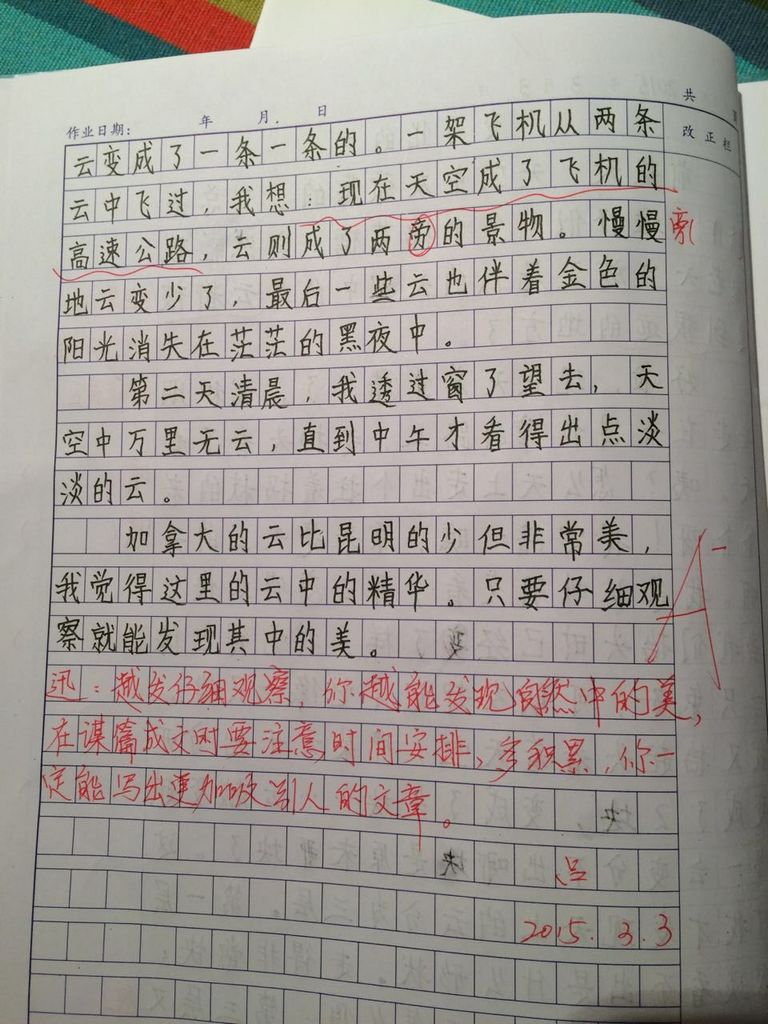 共 页
作业日期: 年 月 日
改正栏
云变成了一条一条的。一架飞机从两条
云中飞过，我想：现在天空成了飞机的
高速公路，云则成了两旁的景物。慢慢
旁
地云变少了，最后一些云也伴着金色的
阳光消失在茫茫的黑夜中。
第二天清晨，我透过窗了望去，天
空中万里无云，直到中午才看得出点淡
淡的云。
加拿大的云比昆明的少但非常美，
我觉得这里的云中的精华。只要仔细观
察就能发现其中的美。
A-
迅：越发仔细观察，你越能发现自然中的美，
在谋篇成文时要注意时间安排，多积累，你一
定能写出更加吸引人的文章。
吕
2015.3.3